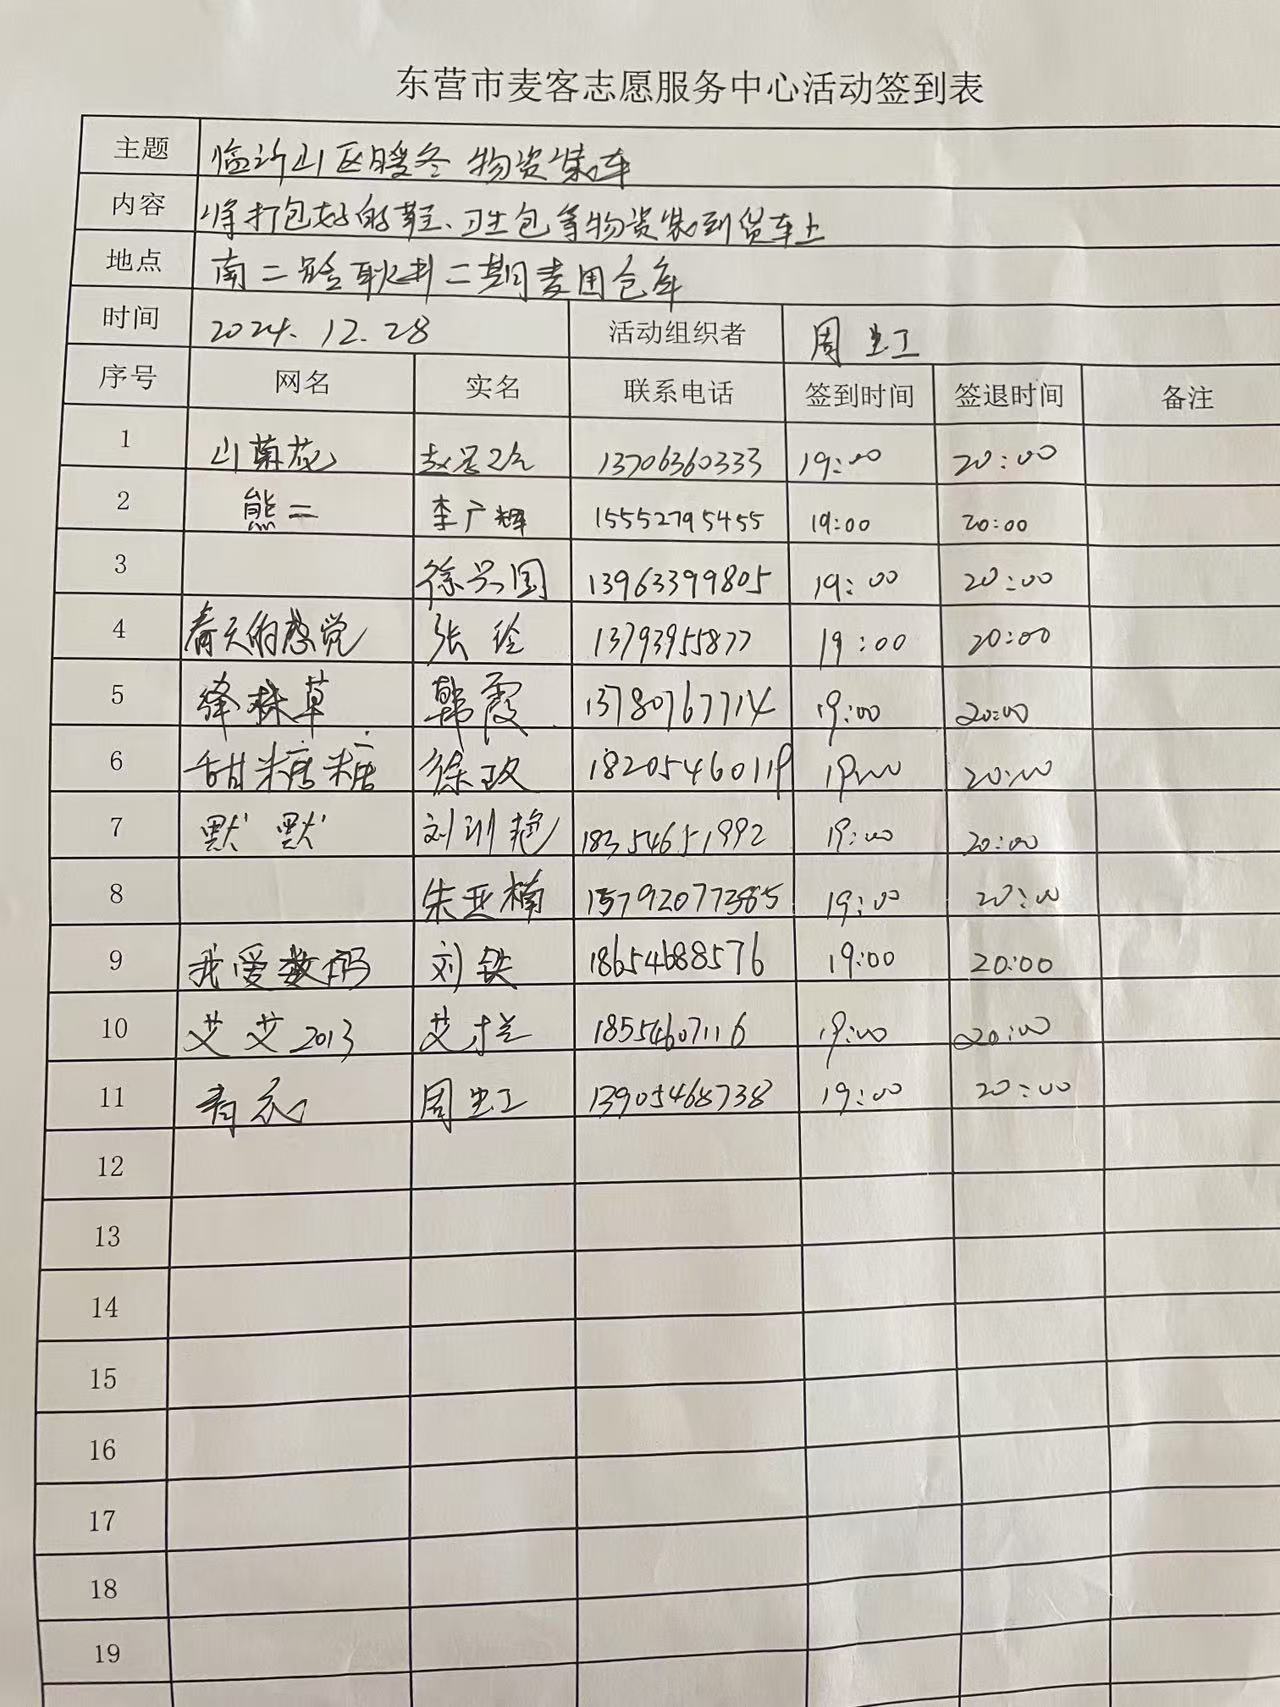 东营市麦客志愿服务中心活动签到表
主题 临沂山区暖冬 物资装车
内容 将打包好的鞋、卫生包等物资装到货车上
地点 南二路耿井二期麦田仓库
时间 2024.12.28 活动组织者 周
序号 网名 实名 联系电话 签到时间 签退时间 备注
1 山菊花 赵 13706360333 19:00 20:00
2 熊二 李广辉 15552795455 19:00 20:00
3 徐 国 13963399805 19:00 20:00
4 春天的感觉 张 13793955877 19:00 20:00
5 绛株草 韩霞 13780767714 19:00 20:00
6 甜糖糖 徐玫 18205460119 19:00 20:00
7 默默 刘训艳 18354651992 19:00 20:00
8 朱亚楠 19:00 20:00
9 我爱数码 刘铁 18654688576 19:00 20:00
10 艾艾2013 艾 18554607116 19:00 20:00
11 青 周 13905468738 19:00 20:00
12
13
14
15
16
17
18
19